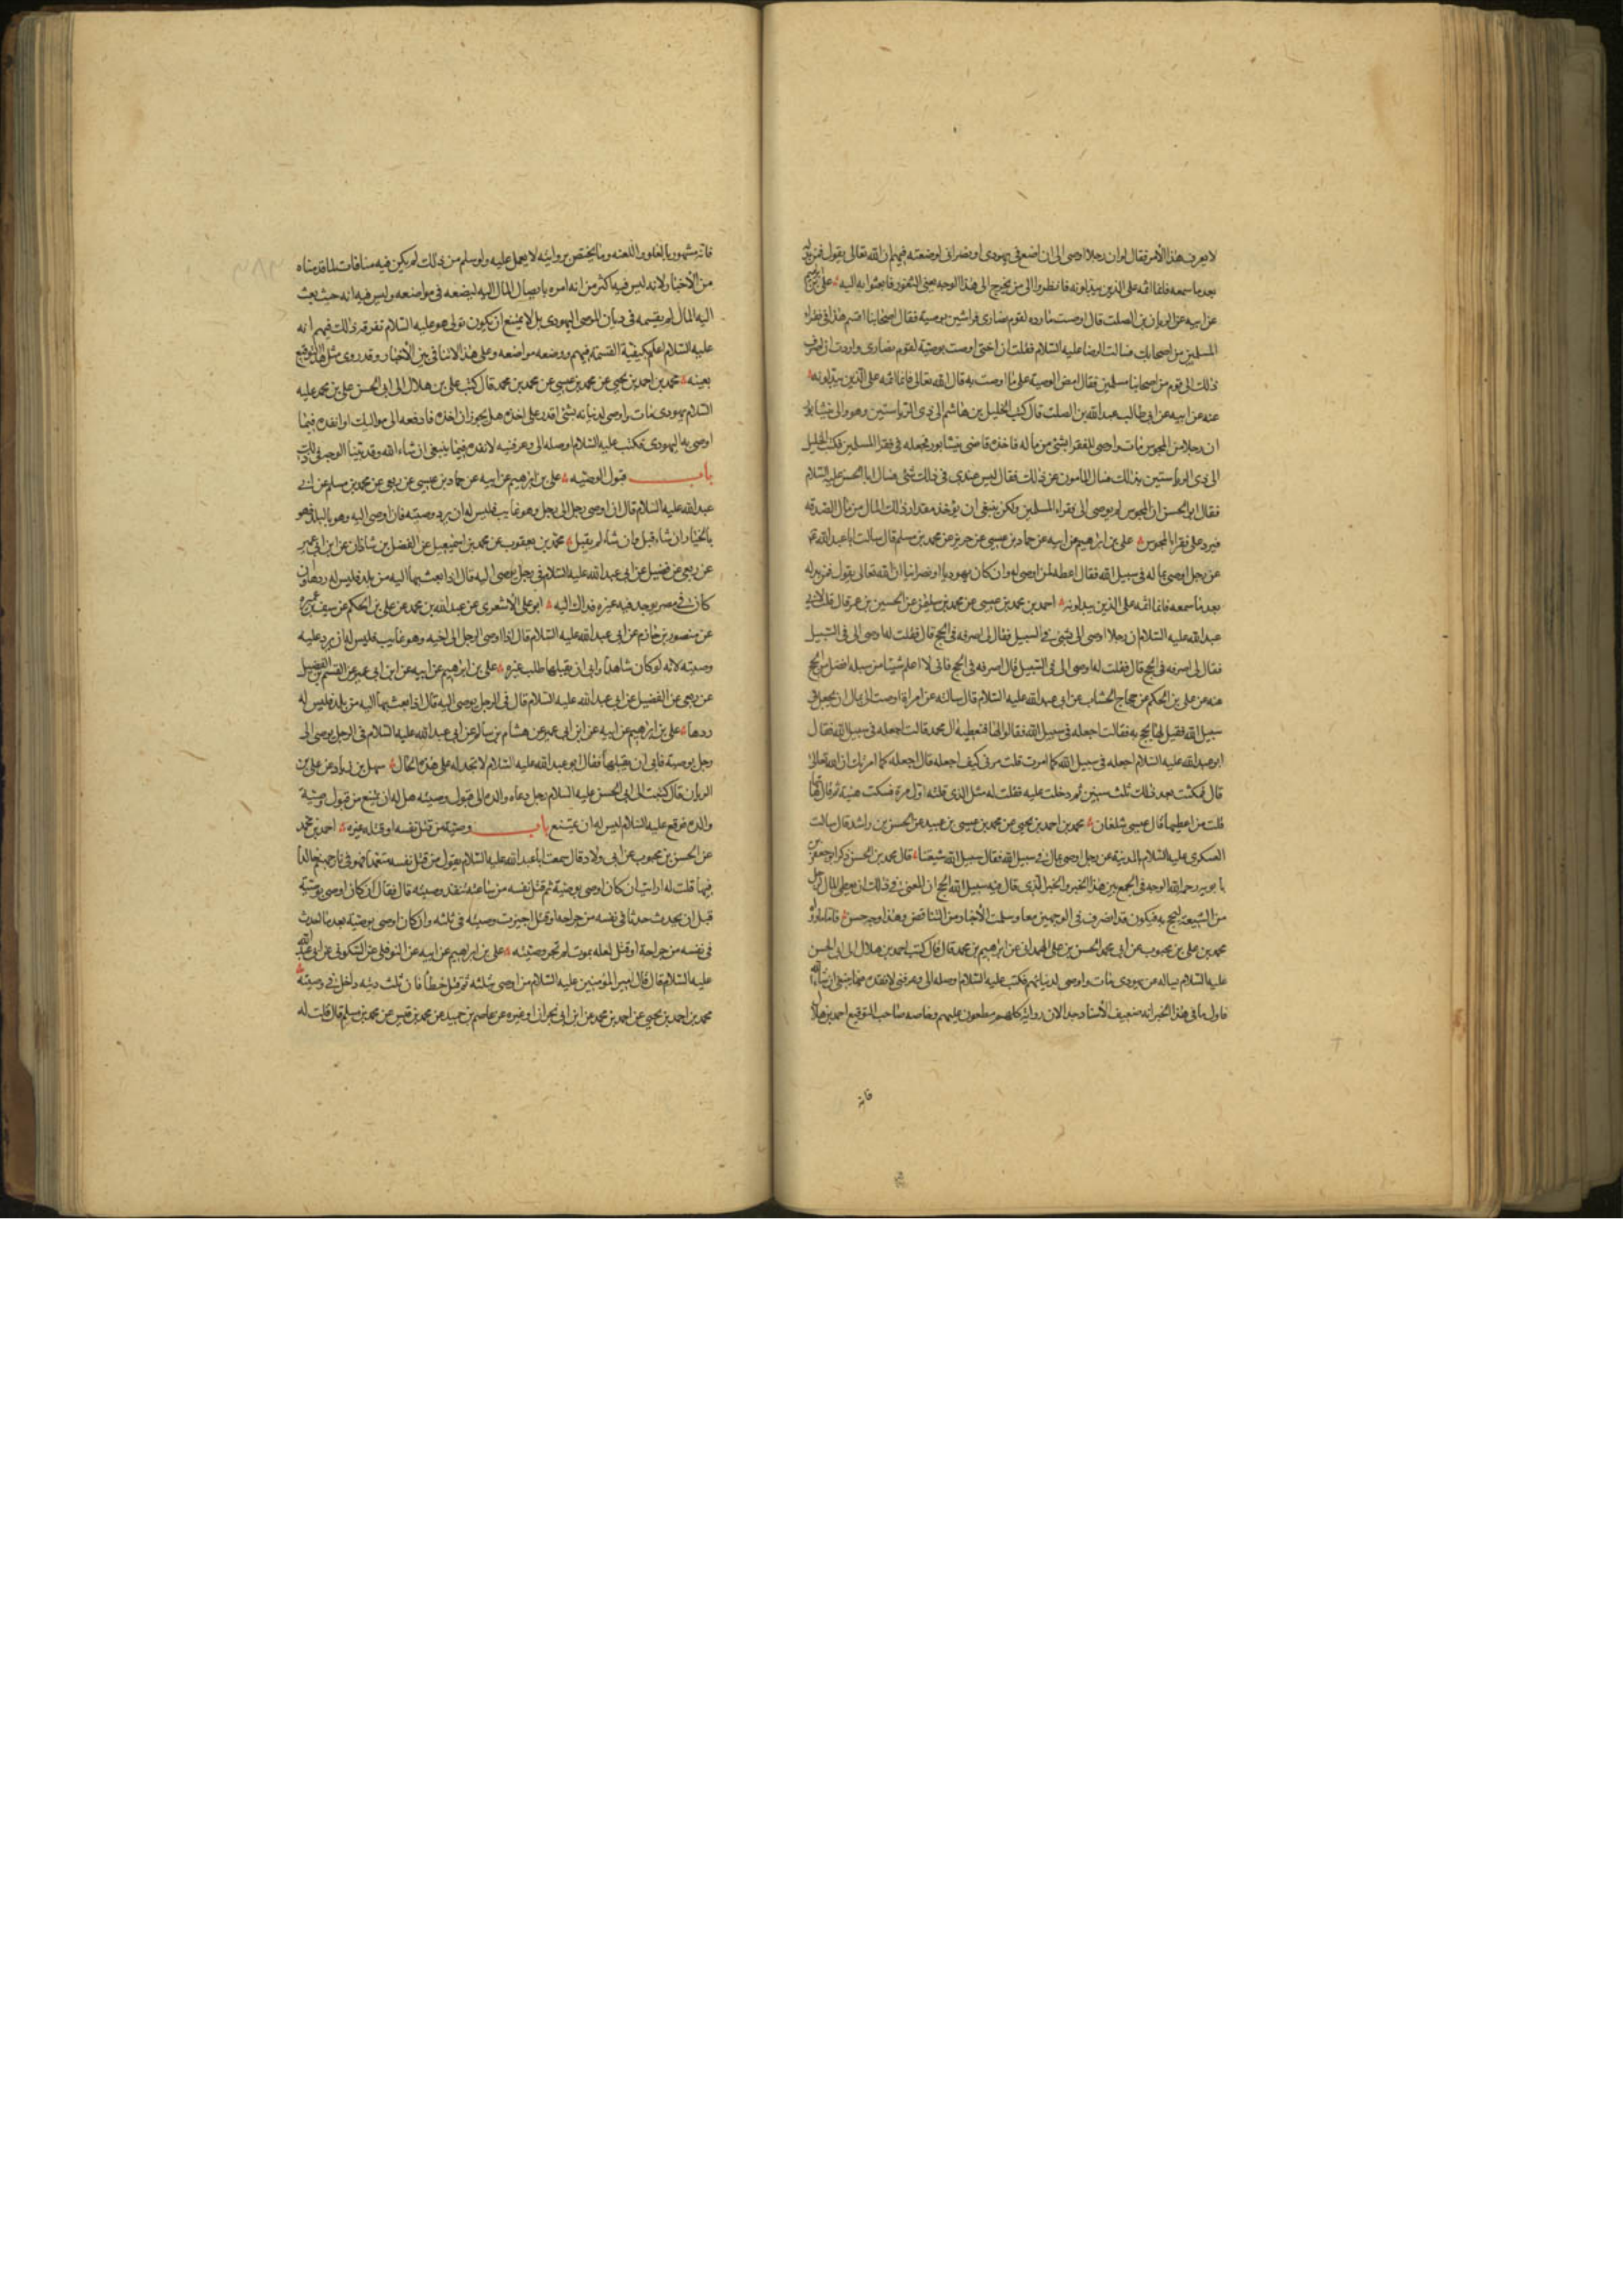 لا يعرف هذا الأمر فقال لو ان رجلا اوصى الى ان اضع في يهودي او نصراني لوضعته فيهم ان الله تعالى يقول فمن بدله
بعد ما سمعه فانما اثمه على الذين يبدلونه فانظروا الى من يخرج الى هذا الوجه يعني الثغور فابعثوا به اليه علي بن ابرهيم
عن ابيه عن الريان بن الصلت قال اوصت مارده لقوم نصارى فراشين بوصية فقال اصحابنا اقسم هذا في فقراء
المسلمين من اصحابك فسالت الرضا عليه السلام فقلت ان اختي اوصت بوصية لقوم نصارى واردت ان اصرف
ذلك الى قوم من اصحابنا مسلمين فقال امض الوصية على ما اوصت به قال الله تعالى فانما اثمه على الذين يبدلونه
عنه عن ابيه عن ابي طالب عبد الله بن الصلت قال كتب الخليل بن هاشم الى ذي الرياستين وهو والي نيشابور
ان رجلا من المجوس مات واوصى للفقراء بشئ من ماله فاخذه قاضي نيشابور فجعله في فقراء المسلمين فكتب الخليل
الى ذي الرياستين بذلك فسال المامون عن ذلك فقال ليس عندي في ذلك شئ فسال ابا الحسن عليه السلام
فقال ابو الحسن ان المجوسي لم يوصى الى فقراء المسلمين ولكن ينبغي ان يؤخذ مقدار ذلك المال من مال الصدقة
فيرد على فقراء المجوس علي بن ابرهيم عن ابيه عن حماد بن عيسى عن حريز عن محمد بن مسلم قال سالت ابا عبد الله
عن رجل اوصى بماله في سبيل الله فقال اعطه لمن اوصى له وان كان يهوديا او نصرانيا ان الله تعالى يقول فمن بدله
بعد ما سمعه فانما اثمه على الذين يبدلونه احمد بن محمد بن عيسى عن محمد بن سليمن عن الحسين بن عمر قال قلت لابي
عبد الله عليه السلام ان رجلا اوصى الى بشئ في السبيل فقال لى اصرفه في الحج قال فقلت له اوصى الى في السبيل
فقال لى اصرفه في الحج قال فقلت له اوصى الى في السبيل قال اصرفه في الحج فاني لا اعلم شيئا من سبله افضل من الحج
عنه عن علي بن الحكم عن حجاج الخشاب عن ابي عبد الله عليه السلام قال سالته عن امراة اوصت الى بمال ان يجعل في
سبيل الله فقيل لها يحج به فقالت اجعله في سبيل الله فقالوا لها فنعطيه ال محمد قالت اجعله في سبيل الله فقال
ابو عبد الله عليه السلام اجعله في سبيل الله كما امرت قلت مرني كيف اجعله قال اجعله كما امرتك ان الله تعالى
قال فمكثت بعد ذلك ثلث سنين ثم دخلت عليه فقلت له مثل الذي قلته اول مرة فسكت هنيئة ثم قال هاتها
قلت من اعطيها قال عيسى شلقان محمد بن احمد بن يحيى عن محمد بن عيسى بن عبيد عن الحسن بن راشد قال سالت
العسكري عليه السلام بالمدينة عن رجل اوصى بمال في سبيل الله فقال سبيل الله شيعتنا قال محمد بن الحسن ذكر ابو جعفر بن
بابويه رحمه الله الوجه في الجمع بين هذا الخبر والخبر الذي قال فيه سبيل الله الحج ان المعنى في ذلك ان يعطي المال لرجل
من الشيعة ليحج به فيكون قد انصرف في الوجهين معا وسلمت الأخبار من التناقض وهذا وجه حسن فاما ما رواه
محمد بن علي بن محبوب عن ابي محمد الحسن بن علي الهمداني عن ابرهيم بن محمد قال كتب احمد بن هلال الى ابي الحسن
عليه السلام يساله عن يهودي مات واوصى لديانهم فكتب عليه السلام اوصله الى وعرفني لانفذه فيما ينبغي ان شاء الله
فاول ما في هذا الخبر انه ضعيف الأسناد جدا لان رواته كلهم مطعون عليهم وخاصه صاحب التوقيع احمد بن هلال
فانه
فانه مشهور بالغلو واللعنه وما يختص بروايته لا يعمل عليه ولو سلم من ذلك لم يكن فيه منافات لما قدمناه
من الأخبار لانه ليس فيه اكثر من انه امره بايصال المال اليه ليضعه في مواضعه وليس فيه انه حيث بعث
اليه المال لم يقسمه في ديان الموصى اليهودي بل لا يمتنع ان يكون تولى هو عليه السلام تفرقة ذلك فيهم انه
عليه السلام اعلم بكيفية القسمة فيهم ووضعه مواضعه وعلى هذا لا تنافي بين الأخبار وقد روى مثل هذا التوقيع
بعينه محمد بن احمد بن يحيى عن محمد بن عيسى عن محمد بن محمد قال كتب علي بن هلال الى ابي الحسن علي بن محمد عليه
السلام يهودي مات واوصى لديانه بشئ اقدر على اخذه هل يجوز ان اخذه فادفعه الى مواليك او انفذه فيما
اوصى به اليهودي فكتب عليه السلام اوصله الى وعرفنيه لانفذه فيما ينبغي ان شاء الله وقد بينا الوجه في ذلك
باب قبول الوصيه علي بن ابرهيم عن ابيه عن حماد بن عيسى عن ربعي عن محمد بن مسلم عن ابي
عبد الله عليه السلام قال ان اوصى رجل الى رجل وهو غايب فليس له ان يرد وصيته فان اوصى اليه وهو بالبلد فهو
بالخيار ان شاء قبل وان شاء لم يقبل محمد بن يعقوب عن محمد بن اسمعيل عن الفضل بن شاذان عن ابن ابي عمير
عن ربعي عن فضيل عن ابي عبد الله عليه السلام في رجل يوصى اليه قال اذا بعث بها اليه من بلد فليس له ردها وان
كان في مصر يوجد فيه غيره فذاك اليه ابو علي الأشعري عن عبد الله بن محمد عن علي بن الحكم عن سيف بن عميرة
عن منصور بن حازم عن ابي عبد الله عليه السلام قال اذا اوصى الرجل الى اخيه وهو غايب فليس له ان يرد عليه
وصيته لانه لو كان شاهدا وابى ان يقبلها طلب غيره علي بن ابرهيم عن ابيه عن ابن ابي عمير عن القسم بن الفضيل
عن ربعي عن الفضيل عن ابي عبد الله عليه السلام قال في الرجل يوصى اليه قال اذا بعث بها اليه من بلد فليس له
ردها علي بن ابرهيم عن ابيه عن ابن ابي عمير عن هشام بن سالم عن ابي عبد الله عليه السلام في الرجل يوصى الى
رجل بوصية فابى ان يقبلها فقال ابو عبد الله عليه السلام لا تخذله على هذه الحال سهل بن زياد عن علي بن
الريان قال كتبت الى ابي الحسن عليه السلام رجل دعاه والده الى قبول وصيته هل له ان يمتنع من قبول وصية
والده فوقع عليه السلام ليس له ان يمتنع باب وصية من قتل نفسه او قتله غيره احمد بن محمد
عن الحسن بن محبوب عن ابي ولاد قال سمعت ابا عبد الله عليه السلام يقول من قتل نفسه متعمدا فهو في نار جهنم خالدا
فيها قلت له ارايت ان كان اوصى بوصية ثم قتل نفسه من ساعته تنفذ وصيته قال فقال ان كان اوصى بوصية
قبل ان يحدث حدثا في نفسه من جراحه او قتل اجيزت وصيته في ثلثه وان كان اوصى بوصية بعد ما احدث
في نفسه من جراحة او قتل لعله يموت لم تجز وصيته علي بن ابرهيم عن ابيه عن النوفلي عن السكوني عن ابي عبد الله
عليه السلام قال قال امير المؤمنين عليه السلام من اوصى بثلثه ثم قتل خطأ فان ثلث ديته داخل في وصيته
محمد بن احمد بن يحيى عن احمد بن محمد عن ابن ابي نجران او غيره عن عاصم بن حميد عن محمد بن قيس عن محمد بن مسلم قال قلت له